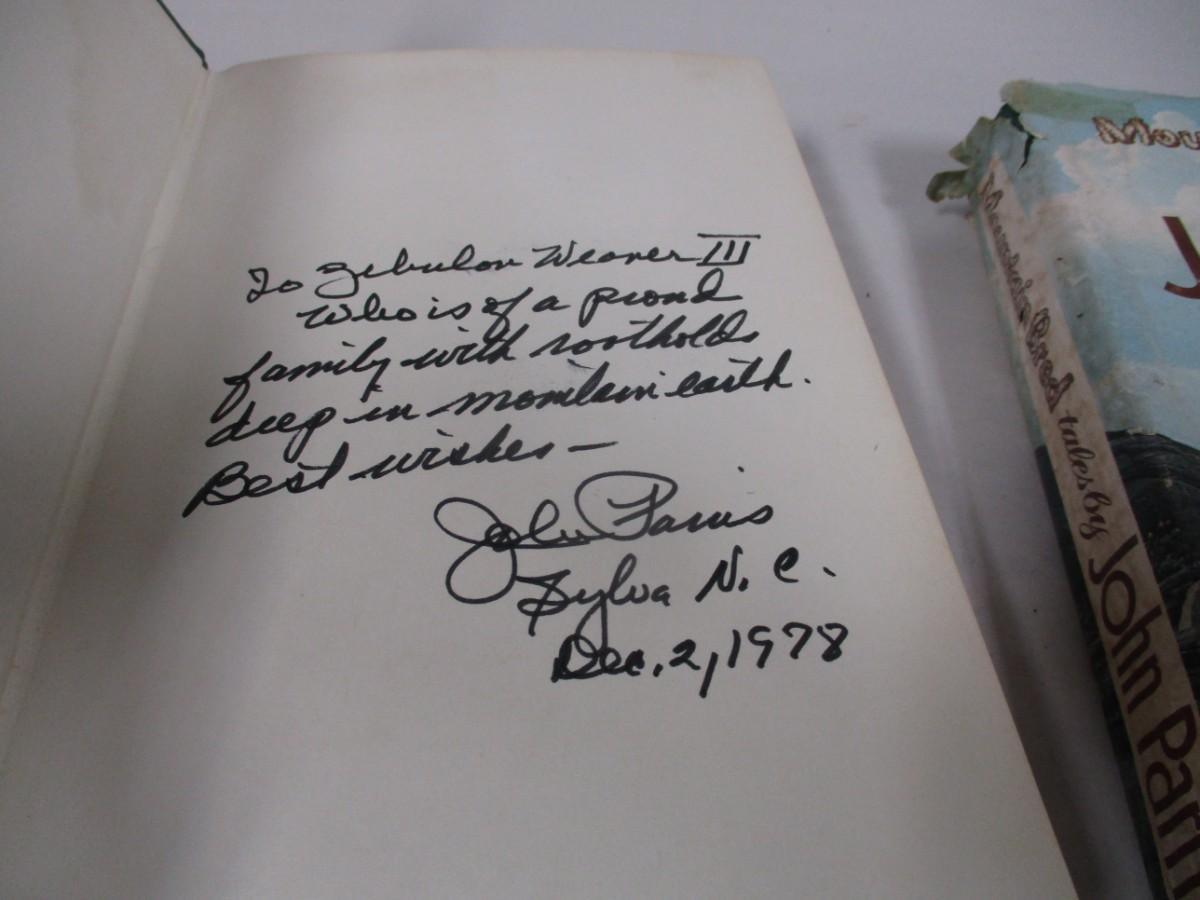 To Zebulon Weaver III
Who is of a proud
family with rootholds
deep in mountain earth.
Best wishes—
John Parris
Sylva N.C.
Dec. 2, 1978
Mou
J
Mountain Bred tales by John Parri